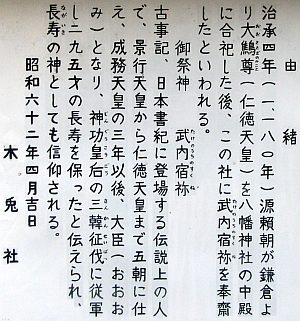 由緒
治承四年（一、一八〇年）源頼朝が鎌倉よ
り大鷦尊（仁徳天皇）を八幡神社の中殿
に合祀した後、この社に武内宿祢を奉齋
したといわれる。
御祭神　武内宿祢
古事記、日本書紀に登場する伝説上の人
で、景行天皇から仁徳天皇まで五朝に仕
え、成務天皇の三年以後、大臣（おおお
み）となり、神功皇后の三韓征伐に従軍
し二九五才の長寿を保ったと伝えられ、
長寿の神としても信仰される。
昭和六十二年四月吉日
木兎社